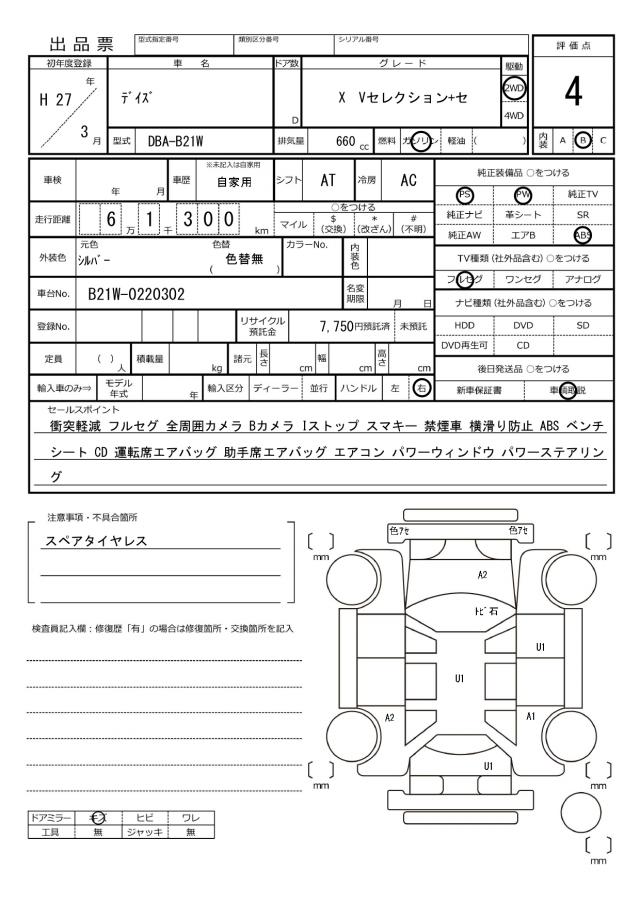 出品票 型式指定番号 類別区分番号 シリアル番号 評価点
初年度登録 車名 ドア数 グレード 駆動
H 27 年 ﾃﾞｲｽﾞ D X Vセレクション+セ 2WD 4
3 月 4WD
型式 DBA-B21W 排気量 660 cc 燃料 ガソリン 軽油 ( ) 内装 A B C
車検 年 月 車歴 ※未記入は自家用 自家用 シフト AT 冷房 AC 純正装備品 ○をつける
PS PW 純正TV
走行距離 6 万 1 千 3 0 0 km ○をつける 純正ナビ 革シート SR
マイル $ (交換) * (改ざん) # (不明) 純正AW エアB ABS
外装色 元色 ｼﾙﾊﾞｰ 色替 ( 色替無 ) カラーNo. 内装色 TV種類 (社外品含む) ○をつける
フルセグ ワンセグ アナログ
車台No. B21W-0220302 名変期限 月 日 ナビ種類 (社外品含む) ○をつける
登録No. リサイクル預託金 7,750 円預託済 未預託 HDD DVD SD
DVD再生可 CD
定員 ( ) 人 積載量 kg 諸元 長さ cm 幅 cm 高さ cm 後日発送品 ○をつける
輸入車のみ⇒ モデル年式 年 輸入区分 ディーラー 並行 ハンドル 左 右 新車保証書 車輌取説
セールスポイント
衝突軽減 フルセグ 全周囲カメラ Bカメラ Iストップ スマキー 禁煙車 横滑り防止 ABS ベンチ
シート CD 運転席エアバッグ 助手席エアバッグ エアコン パワーウィンドウ パワーステアリン
グ
注意事項・不具合箇所
スペアタイヤレス
検査員記入欄：修復歴「有」の場合は修復箇所・交換箇所を記入
色ｱｾ 色ｱｾ
mm mm
A2
ﾄﾋﾞ石
U1
U1
A2 A1
U1
mm mm
ドアミラー キズ ヒビ ワレ
工具 無 ジャッキ 無
mm